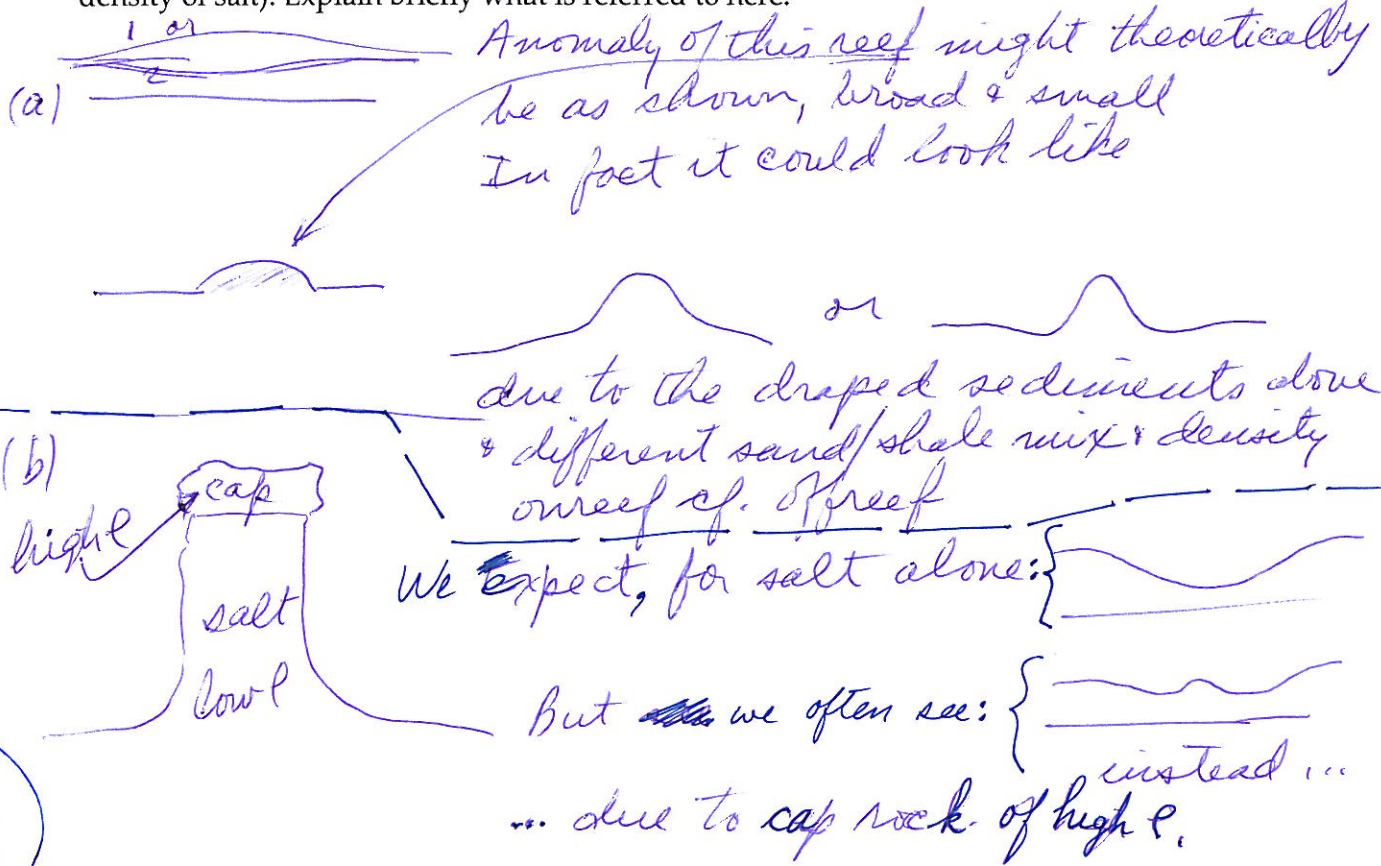 density of salt). Explain briefly what is referred to here.
1 or
2
(a)
Anomaly of this reef might theoretically
be as shown, broad & small
In fact it could look like
or
due to the draped sediments above
& different sand/shale mix & density
onreef cf. offreef
(b)
cap
high ρ
salt
low ρ
We Expect, for salt alone:
But we often see:
instead ...
... due to cap rock of high ρ.